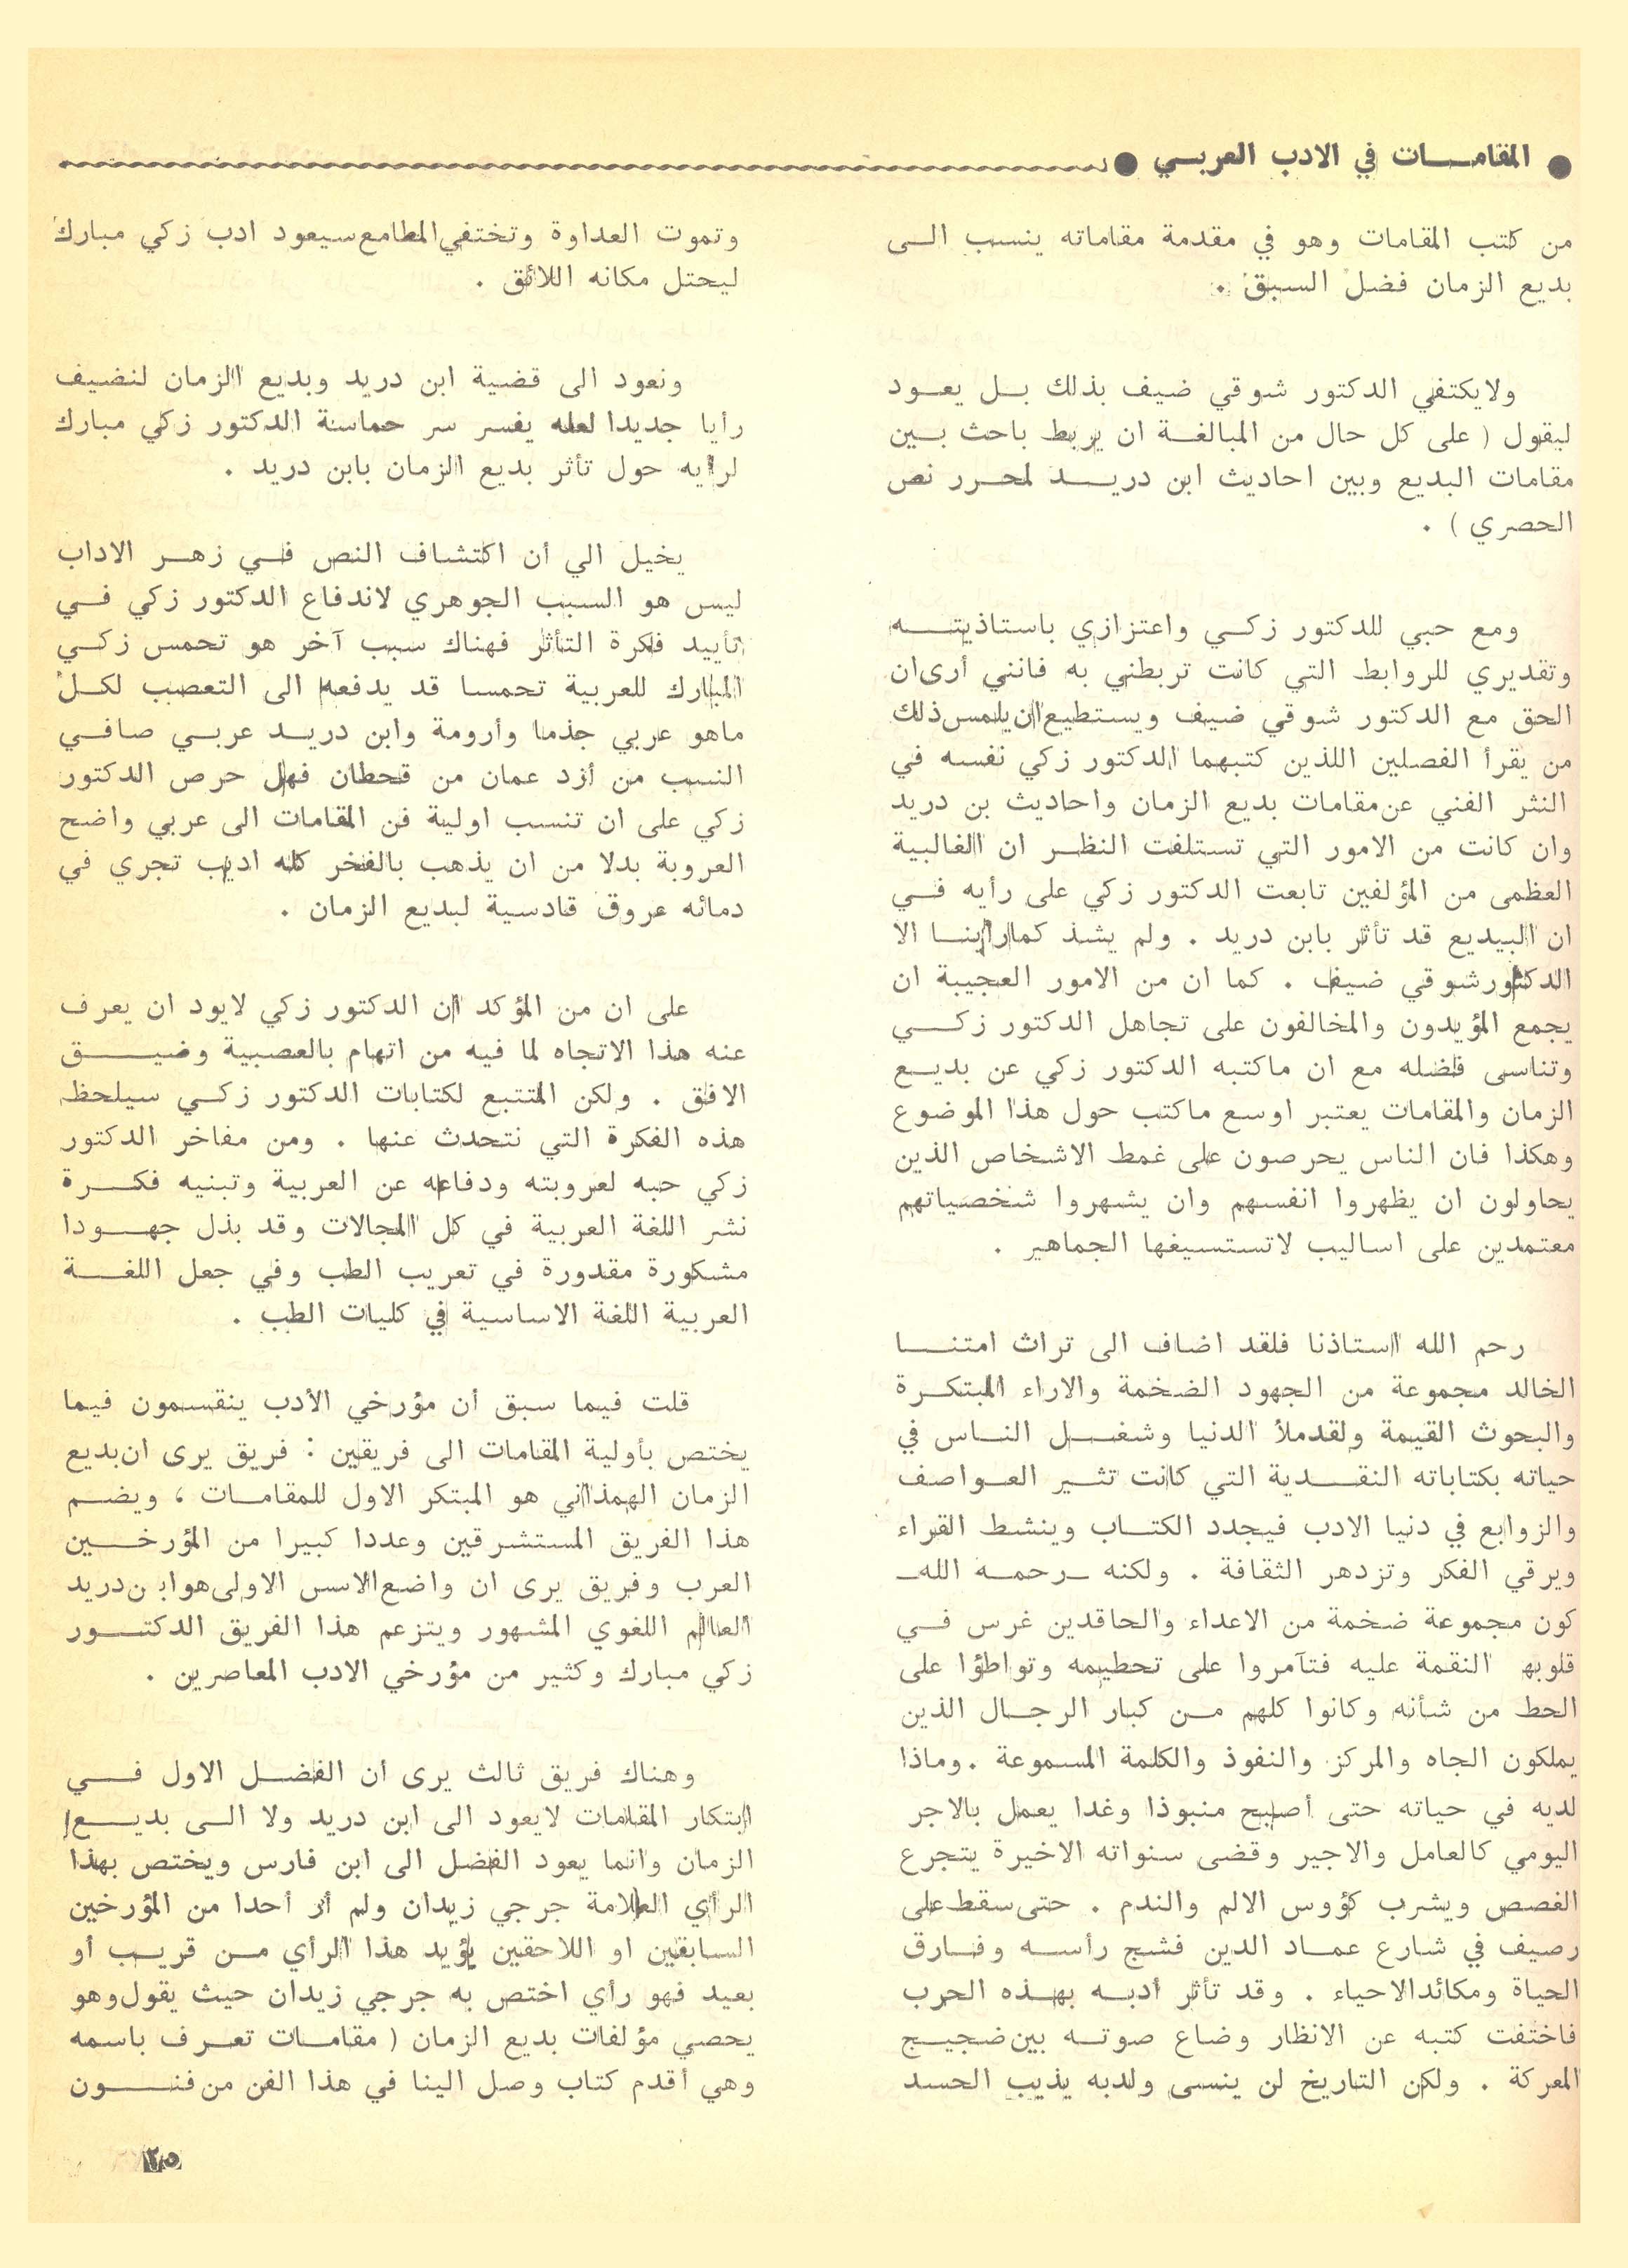 ● المقامات في الادب العربي ●
من كتب المقامات وهو في مقدمة مقاماته ينسب الى
بديع الزمان فضل السبق .
ولايكتفي الدكتور شوقي ضيف بذلك بل يعود
ليقول ( على كل حال من المبالغة ان يربط باحث بين
مقامات البديع وبين احاديث ابن دريد لمحرر نص
الحصري ) .
ومع حبي للدكتور زكي واعتزازي باستاذيته
وتقديري للروابط التي كانت تربطني به فانني أرى ان
الحق مع الدكتور شوقي ضيف ويستطيع ان يلمس ذلك
من يقرأ الفصلين اللذين كتبهما الدكتور زكي نفسه في
النثر الفني عن مقامات بديع الزمان واحاديث بن دريد
وان كانت من الامور التي تستلفت النظر ان الغالبية
العظمى من المؤلفين تابعت الدكتور زكي على رأيه في
ان البيديع قد تأثر بابن دريد . ولم يشذ كما راينا الا
الدكتور شوقي ضيف . كما ان من الامور العجيبة ان
يجمع المؤيدون والمخالفون على تجاهل الدكتور زكي
وتناسى فضله مع ان ماكتبه الدكتور زكي عن بديع
الزمان والمقامات يعتبر اوسع ماكتب حول هذا الموضوع
وهكذا فان الناس يحرصون على غمط الاشخاص الذين
يحاولون ان يظهروا انفسهم وان يشهروا شخصياتهم
معتمدين على اساليب لاتستسيغها الجماهير .
رحم الله استاذنا فلقد اضاف الى تراث امتنا
الخالد مجموعة من الجهود الضخمة والاراء المبتكرة
والبحوث القيمة ولقدملأ الدنيا وشغل الناس في
حياته بكتاباته النقدية التي كانت تثير العواصف
والزوابع في دنيا الادب فيجدد الكتاب وينشط القراء
ويرقي الفكر وتزدهر الثقافة . ولكنه ـ رحمه الله ـ
كون مجموعة ضخمة من الاعداء والحاقدين غرس في
قلوبه النقمة عليه فتآمروا على تحطيمه وتواطؤا على
الحط من شأنه وكانوا كلهم من كبار الرجال الذين
يملكون الجاه والمركز والنفوذ والكلمة المسموعة . وماذا
لديه في حياته حتى أصبح منبوذا وغدا يعمل بالاجر
اليومي كالعامل والاجير وقضى سنواته الاخيرة يتجرع
الغصص ويشرب كؤوس الالم والندم . حتى سقط على
رصيف في شارع عماد الدين فشج رأسه وفارق
الحياة ومكائد الاحياء . وقد تأثر أدبه بهذه الحرب
فاختفت كتبه عن الانظار وضاع صوته بين ضجيج
المعركة . ولكن التاريخ لن ينسى ولدبه يذيب الحسد
وتموت العداوة وتختفي المطامع سيعود ادب زكي مبارك
ليحتل مكانه اللائق .
ونعود الى قضية ابن دريد وبديع الزمان لنضيف
رأيا جديدا لعله يفسر سر حماسة الدكتور زكي مبارك
لرايه حول تأثر بديع الزمان بابن دريد .
يخيل الي أن اكتشاف النص في زهر الاداب
ليس هو السبب الجوهري لاندفاع الدكتور زكي في
تأييد فكرة التأثر فهناك سبب آخر هو تحمس زكي
المبارك للعربية تحمسا قد يدفعه الى التعصب لكل
ماهو عربي جذما وأرومة وابن دريد عربي صافي
النسب من أزد عمان من قحطان فهل حرص الدكتور
زكي على ان تنسب اولية فن المقامات الى عربي واضح
العروبة بدلا من ان يذهب بالفخر كله اديب تجري في
دمائه عروق قادسية لبديع الزمان .
على ان من المؤكد ان الدكتور زكي لايود ان يعرف
عنه هذا الاتجاه لما فيه من اتهام بالعصبية وضيق
الافق . ولكن المتتبع لكتابات الدكتور زكي سيلحظ
هذه الفكرة التي نتحدث عنها . ومن مفاخر الدكتور
زكي حبه لعروبته ودفاعه عن العربية وتبنيه فكرة
نشر اللغة العربية في كل المجالات وقد بذل جهودا
مشكورة مقدورة في تعريب الطب وفي جعل اللغة
العربية اللغة الاساسية في كليات الطب .
قلت فيما سبق أن مؤرخي الأدب ينقسمون فيما
يختص بأولية المقامات الى فريقين : فريق يرى ان بديع
الزمان الهمذاني هو المبتكر الاول للمقامات ، ويضم
هذا الفريق المستشرقين وعددا كبيرا من المؤرخين
العرب وفريق يرى ان واضع الاسس الاولى هو ابن دريد
العالم اللغوي المشهور ويتزعم هذا الفريق الدكتور
زكي مبارك وكثير من مؤرخي الادب المعاصرين .
وهناك فريق ثالث يرى أن الفضل الاول في
ابتكار المقامات لايعود الى ابن دريد ولا الى بديع
الزمان وانما يعود الفضل الى ابن فارس ويختص بهذا
الرأي العلامة جرجي زيدان ولم أر أحدا من المؤرخين
السابقين او اللاحقين يؤيد هذا الرأي من قريب أو
بعيد فهو رأي اختص به جرجي زيدان حيث يقول وهو
يحصي مؤلفات بديع الزمان ( مقامات تعرف باسمه
وهي أقدم كتاب وصل الينا في هذا الفن من فنون
٢٥